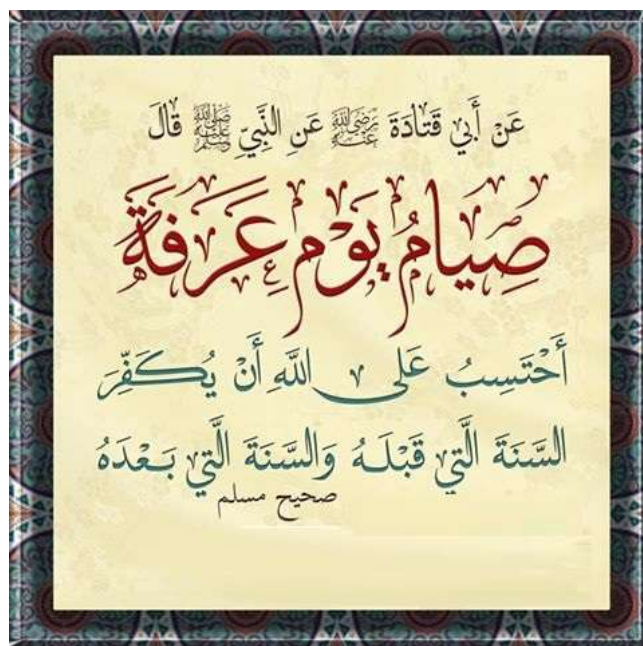 عَنْ أَبِي قَتَادَةَ رَضِيَ اللَّهُ عَنْهُ عَنِ النَّبِيِّ ﷺ قَالَ
صِيَامُ يَوْمِ عَرَفَةَ
أَحْتَسِبُ عَلَى اللَّهِ أَنْ يُكَفِّرَ
السَّنَةَ الَّتِي قَبْلَهُ وَالسَّنَةَ الَّتِي بَعْدَهُ
صحيح مسلم